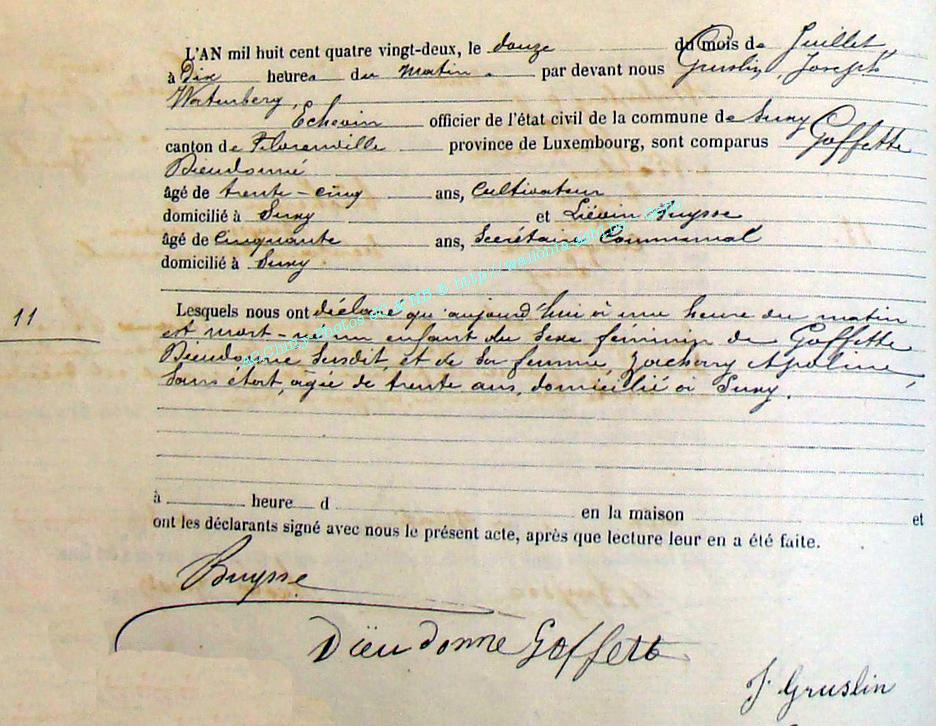 L'AN mil huit cent quatre vingt-deux, le douze du mois de Juillet
à Dix heures du matin. par devant nous Gruslin, Joseph
Watenberg,
Echevin officier de l'état civil de la commune de Suxy
canton de Florenville province de Luxembourg, sont comparus Goffette
Dieudonné
âgé de trente-cinq ans, Cultivateur
domicilié à Suxy et Liévin Buysse
âgé de Cinquante ans, Secrétaire Communal
domicilié à Suxy
Lesquels nous ont déclaré qu'aujourd'hui à une heure du matin
11
est mort-né un enfant du Sexe féminin de Goffette
Dieudonné Susdit, et de Sa femme, Zachary Apoline,
Sans état, âgée de trente ans, domicilié à Suxy.
à heure d en la maison et
ont les déclarants signé avec nous le présent acte, après que lecture leur en a été faite.
Buysse
Dieudonné Goffette
J. Gruslin